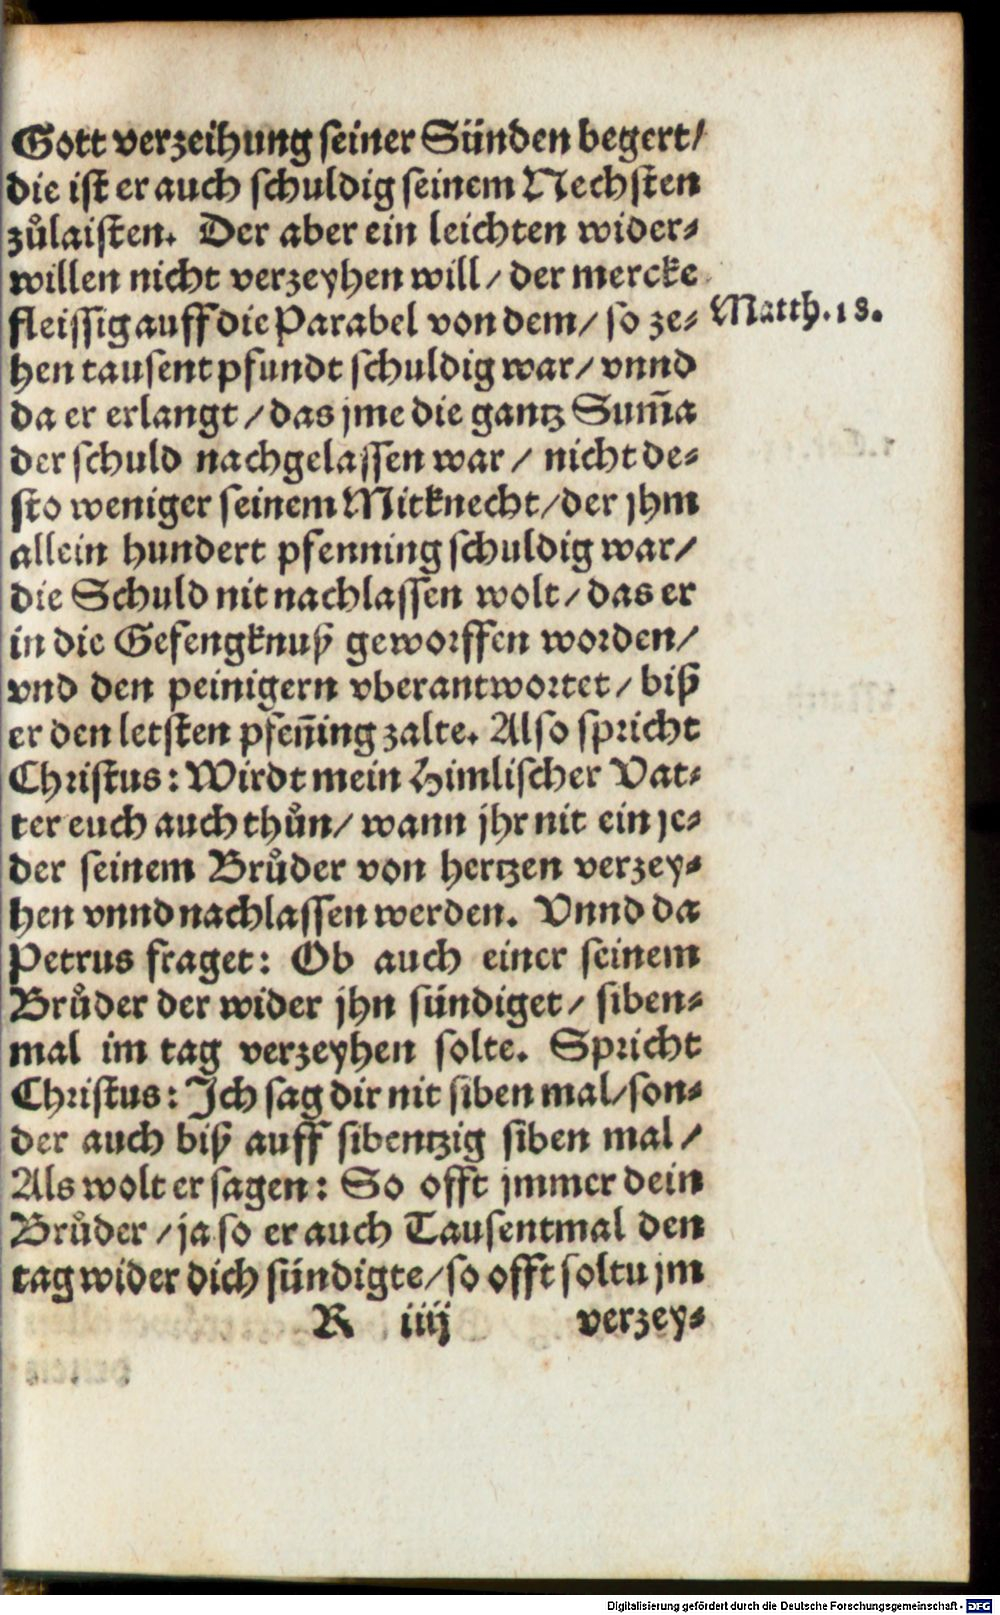 Gott verzeihung seiner Sünden begert/
die ist er auch schuldig seinem Nechsten
zůlaisten. Der aber ein leichten wider-
willen nicht verzeyhen will/ der mercke
fleissig auff die Parabel von dem/ so ze-
Matth.18.
hen tausent pfundt schuldig war/ vnnd
da er erlangt/ das jme die gantz Sum̃a
der schuld nachgelassen war/ nicht de-
sto weniger seinem Mitknecht/ der jhm
allein hundert pfenning schuldig war/
die Schuld nit nachlassen wolt/ das er
in die Gefengknuß geworffen worden/
vnd den peinigern vberantwortet/ biß
er den letsten pfen̄ing zalte. Also spricht
Christus: Wirdt mein Himlischer Vat-
ter euch auch thůn/ wann jhr nit ein je-
der seinem Brůder von hertzen verzey-
hen vnnd nachlassen werden. Vnnd da
Petrus fraget: Ob auch einer seinem
Brůder der wider jhn sündiget/ siben-
mal im tag verzeyhen solte. Spricht
Christus: Ich sag dir nit siben mal/ son-
der auch biß auff sibentzig siben mal/
Als wolt er sagen: So offt jmmer dein
Brůder/ ja so er auch Tausentmal den
tag wider dich sündigte/ so offt soltu jm
R iiij verzey-
Digitalisierung gefördert durch die Deutsche Forschungsgemeinschaft - DFG